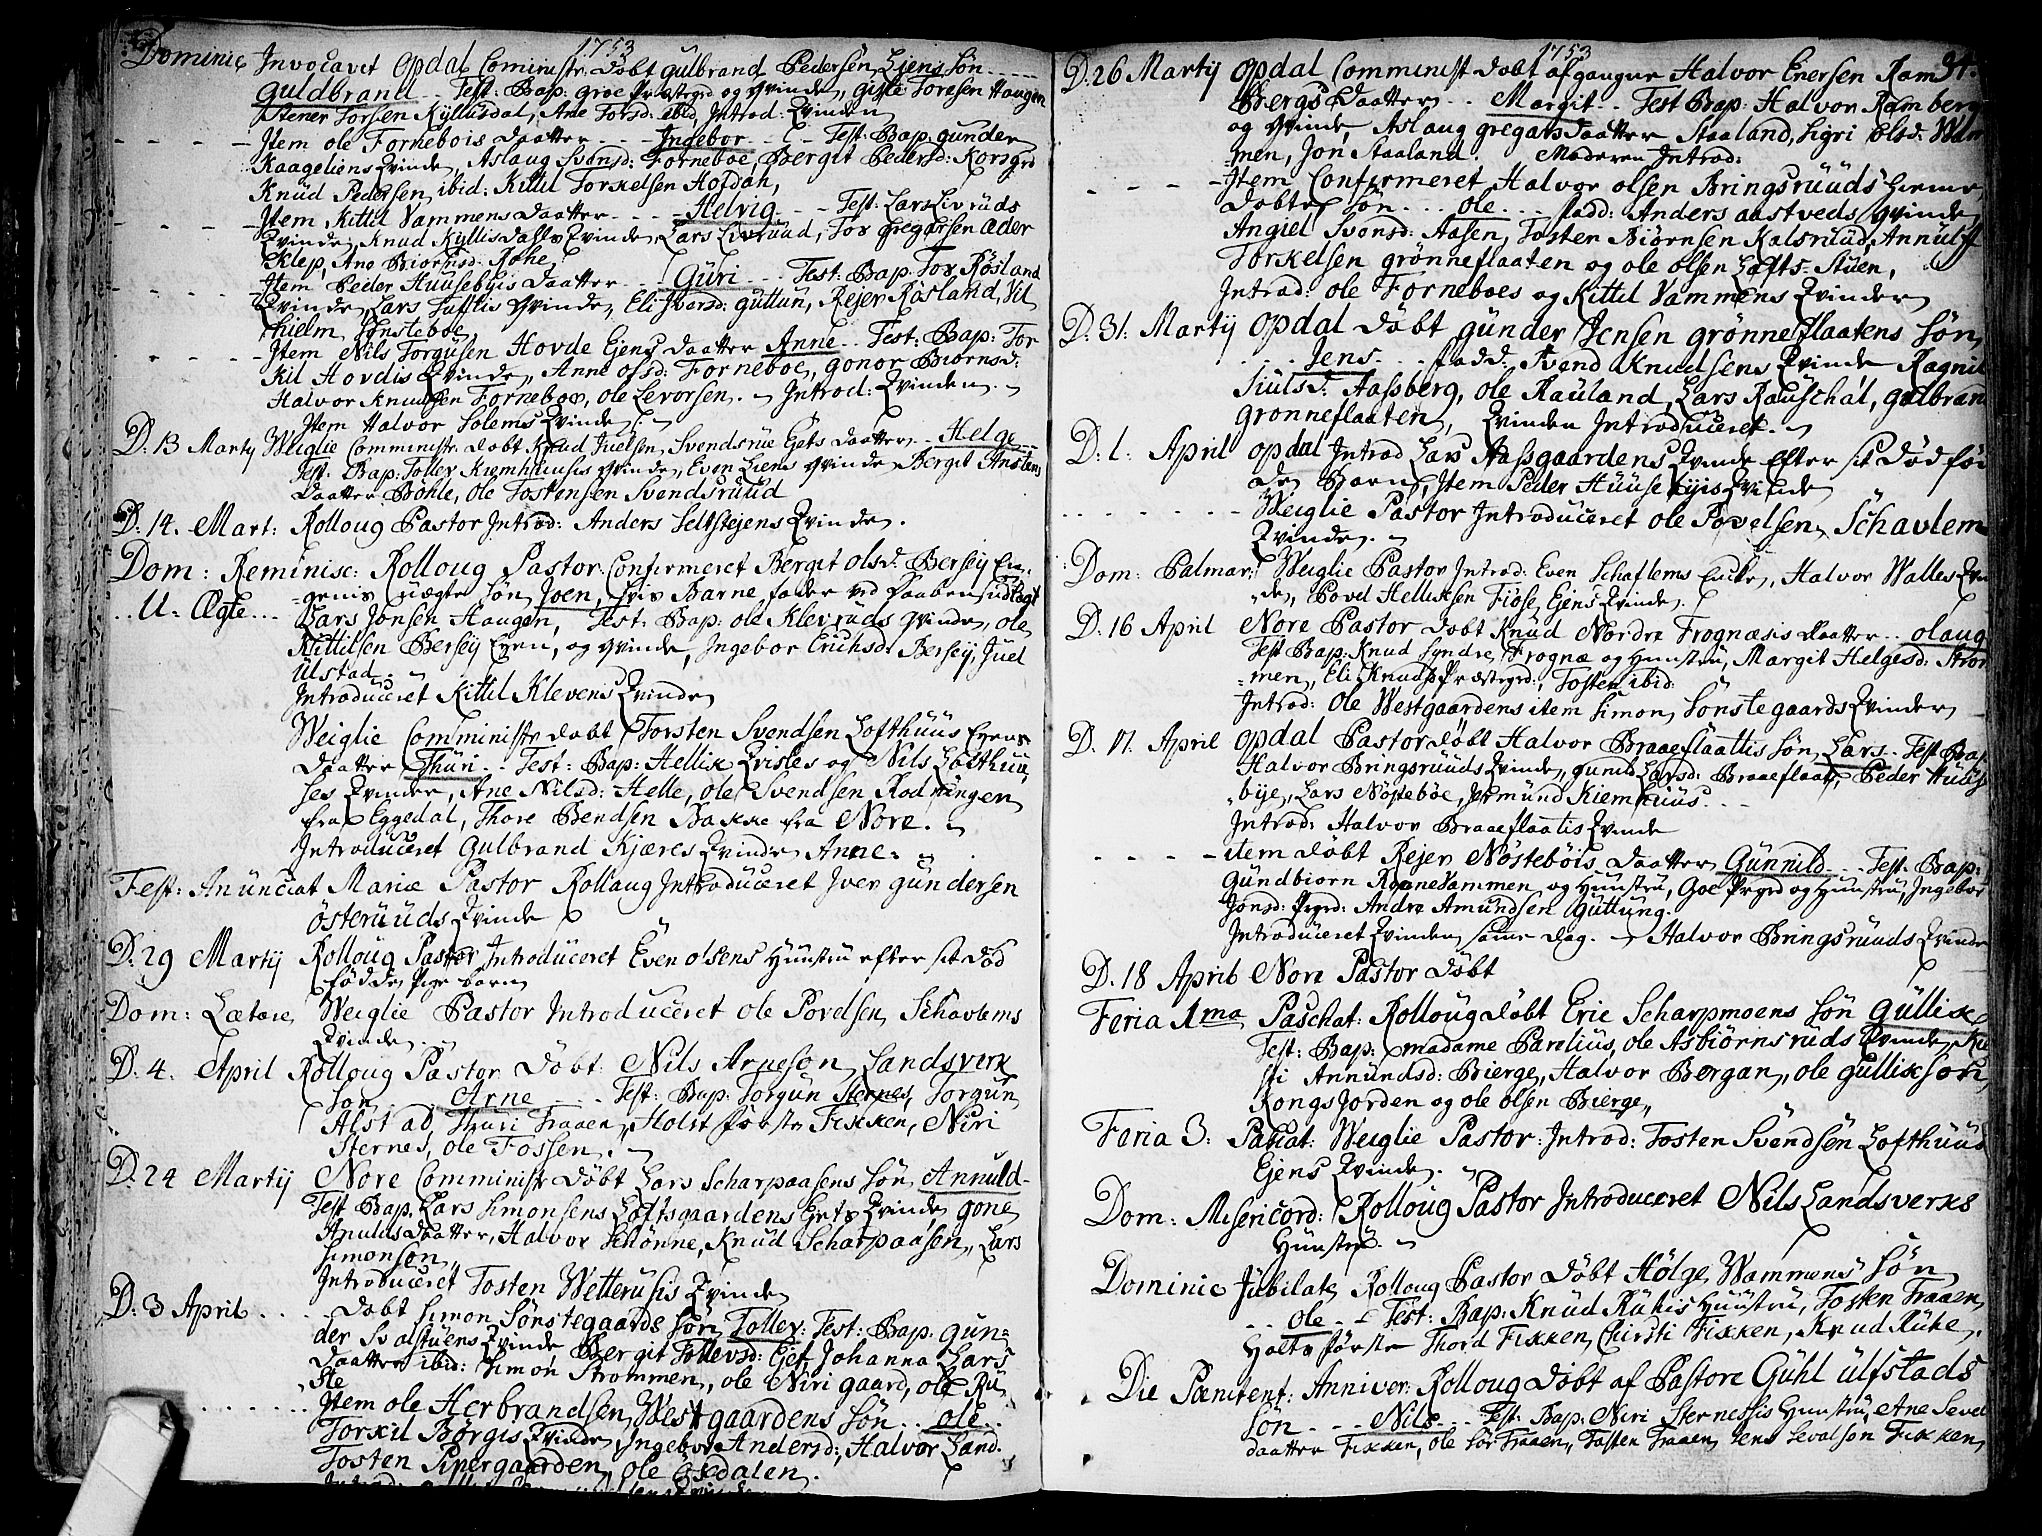 1753
Dominic Invocavit Opdal Cominist: döbt gulbrand Pedersen Ejens Sön
Guldbrand Test: Bap: groe Præstegrd og Qvinde, Gisle Toresen Haugen
Stener Torsen Kyllusdal, Ane Torsd: ibid, Introd: Qvinden
Item ole Fornebois Daatter Ingebor Test: Bap: gunder
Kaageliens Qvinde, Aslaug Svensd: Forneboe, Bergit Pedersd: Korsgrd
Knud Pedersen ibid: Kittil Torkelsen Hofdah,
Item Kittil Vammens Daatter Helvig Test: Lars Livruds
Qvinde, Knud Kyllisdahls Qvinde, Lars Livruud, Tor gregarsen Ader
Klep, Ane Biornsd: Rohe
Item Peder Huusebyis Daatter Guri Test: Bap: Tor Røsland
Qvinde, Lars Tuftis Qvinde, Eli Iversd: guttun, Rejer Røsland, Vil
hielm Sönsteböe
Item Nils Torgusen Hovde Ejens Daatter Anne Test: Bap: Tor
Kil Hovdis Qvinde, Anne olsd: Forneboe, gonor Biornsd:
Halvor Knudsen Forneboe, ole Levorsen. Introd: Qvinden.
Item Halvor Solems Qvinde.
D: 13 Martij Weiglie Cominist: döbt Knud Juelsen Svendsrue Ejets Daatter Helge
Test: Bap: Tollev Kiemhuusis Qvinde, Even Liens Qvinde Bergit Anstens
Daatter Böhle, ole Tostensen Svendsruud
D. 14. Mart: Rolloug Pastor Introd: Anders Seltstejens Qvinde.
Dom: Reminisc: Rolloug Pastor Confirmeret Bergit olsd: Bersey En
U-Ægte genis uægte Sön Joen, hvis Barne fader ved Daaben udlagt
Lars Jonsen Haugen, Test: Bap: ole Klevruds Qvinde, ole
Kittilsen Bersey Even, og Qvinde, Ingebor Erichsd: Bersey, Juel
Ulstad
Introduceret Kittil Klevens Qvinde
Weiglie Comministr döbt Torsten Svendsen Lofthuus Eyens
Daatter Thuri Test: Bap: Hellik Qvisles og Nils Lofthuu
ses Qvinder, Ane Nilsd: Helle, ole Svendsen Rodningen
fra Eggedal, Thore Bendsen Bakke fra Nore.
Introduceret Gulbrand Kjæres Qvinde Anne
Fest: Anunciat Mariæ Pastor Rollaug Introduceret Iver gundersen
Österuuds Qvinde
D: 29 Martij Rolloug Pastor Introduceret Even olsens Huustru efter sit död
födde Pige barn
Dom: Lætare Weiglie Pastor Introduceret ole Povelsen Schavlems
Qvinde.
D. 4. April Rolloug Pastor Döbt Nils Arneson Landsverk
Sön Arne Test: Bap: Torgun Sternes, Torgun
Alstad, Thuri Traaen, Holst Förste Fikken, Niri
Sternes, ole Fossen.
D: 24 Martij Nore Comministr Döbt Lars Scharpaasens Sön Annuld
Test Bap. Lars Simonsens Loftsgaardens Ejets Qvinde gone
Anulds Daatter, Halvor Schönne, Knud Scharpaasen, Lars
Simonson
Introduceret Tosten Wetterusis Qvinde
D: 3 April Döbt Simon Sönstegaards Sön Tollev: Test: Bap: Gun
der Svalstuens Qvinde Bergit Tollevsd: Ejet, Johanna Lars
Daatter ibid: Simon Strommen, ole Niri gaard, ole Rü
Ste
Item ole Herbrandsen Westgaardens Sön ole
Torkil Börgis Qvinde, Ingebor Andersd: Halvor Land
Tosten Pipergaarden, ole Ösdalen.
1753
94.
D: 26 Martij Opdal Comminist döbt afgangne Halvor Enersen Ram
Bergs Daatter Margit Test Bap: Halvor Ramberg
og Qvinde, Aslaug gregars Daatter Staaland, Sigri olsd: Wam
men, Jon Staaland. Moderen Introd:
Item Confirmeret Halvor olsen Bringsruuds hieme
döbte Sön ole fadd: Anders aastveds Qvinde
Angiel Svensd: Aasen, Tosten Biørnsen Kalsruud, Annulff
Torkelsen grönneflaaten og ole olsen Lofts-Stuen,
Introd: ole Forneboes og Kittil Vammens Qvinder
D: 31. Martij Opdal döbt günder Jensen grönneflaatens Sön
Jens fadd. Svend Knudsens Qvinde Ragnil
Siulsd: Aasberg, ole Rauland, Lars Rauschal, gulbrand
Grönneflaaten, Qvinden Introduceret.
D: 1. April Opdal Introd Lars Aasgaardens Qvinde efter sit död fö
de Barn, Item Peder Huusebyis Qvinde
Weiglie Pastor Introduceret ole Povelsen Schavlem
Qvinde.
Dom: Palmar: Weiglie Pastor Introd: Even Schaflems Encke, Halvor Walles Qvin
de, Povel Helliksen Fiöse Ejens Qvinde.
D: 16 April Nore Pastor döbt Knud Nordre Frognæsis Daatter olaug
Test Bap: Knud Syndre Frognæ og Huustru, Margit Helgesd: Strom
men, Eli Knudsd Præstegrd:, Tosten ibid:
Introd: Ole Westgaardens item Simon Sönstegaards Qvinder
D. 17. April Opdal Pastor döbt Halvor Braaeflaattis Sön Lars. Test Bap
Halvor Bringsruuds Qvinde, gunild Larsd: Braaeflaat, Peder Huuse
bye, Lars Nöstebøe, Jermund Kiemhuus.
Introd: Halvor Braaeflaatis Qvinde
item döbt Rejer Nöstebois Daatter Günnild Test: Bap:
Gundbiorn Vammen og Huustru, Goe Prgrd og Huustru, Ingebor
Jonsd: Prgrd: Andre Amundsen Guttung.
Introduceret Qvinden samme dag. Halvor Bringsruuds Qvinde
D. 18 April Nore Pastor döbt
Feria 1ma Paschat: Rolloug döbt Eric Scharpmoens Sön Güllik
Test: Bap: madame Parelius, ole Asbiörnsruds Qvinde, Ki
sti Annundsd: Bierge, Halvor Bergan, ole güllikson
KongsJorden og ole olsen Bierge,
Feria 3: Pascat: Weiglie Pastor: Introd: Tosten Svendsen Lofthuus
Ejens Qvinde.
Dom: Misericord: Rolloug Pastor Introduceret Nils Landsverks
Hustru.
Dominic Jubilate Rolloug Pastor döbt Hölge Wammens Sön
ole Test: Bap: Knud Rühis Huustru, Tosten Traaen
Holte Förste Thord Fikken, Chirsti Fikken, Knud Rühe.
Die Pænitent: Anniver: Rolloug Döbt af Pastore Gühl Ulfstads
Sön Nils Test: Bap: Niri Sternessis Huustru, Ane Sevel
daatter Fikken, ole Sör Traaen, Tosten Traaen, Jens Sevalson Fikken,